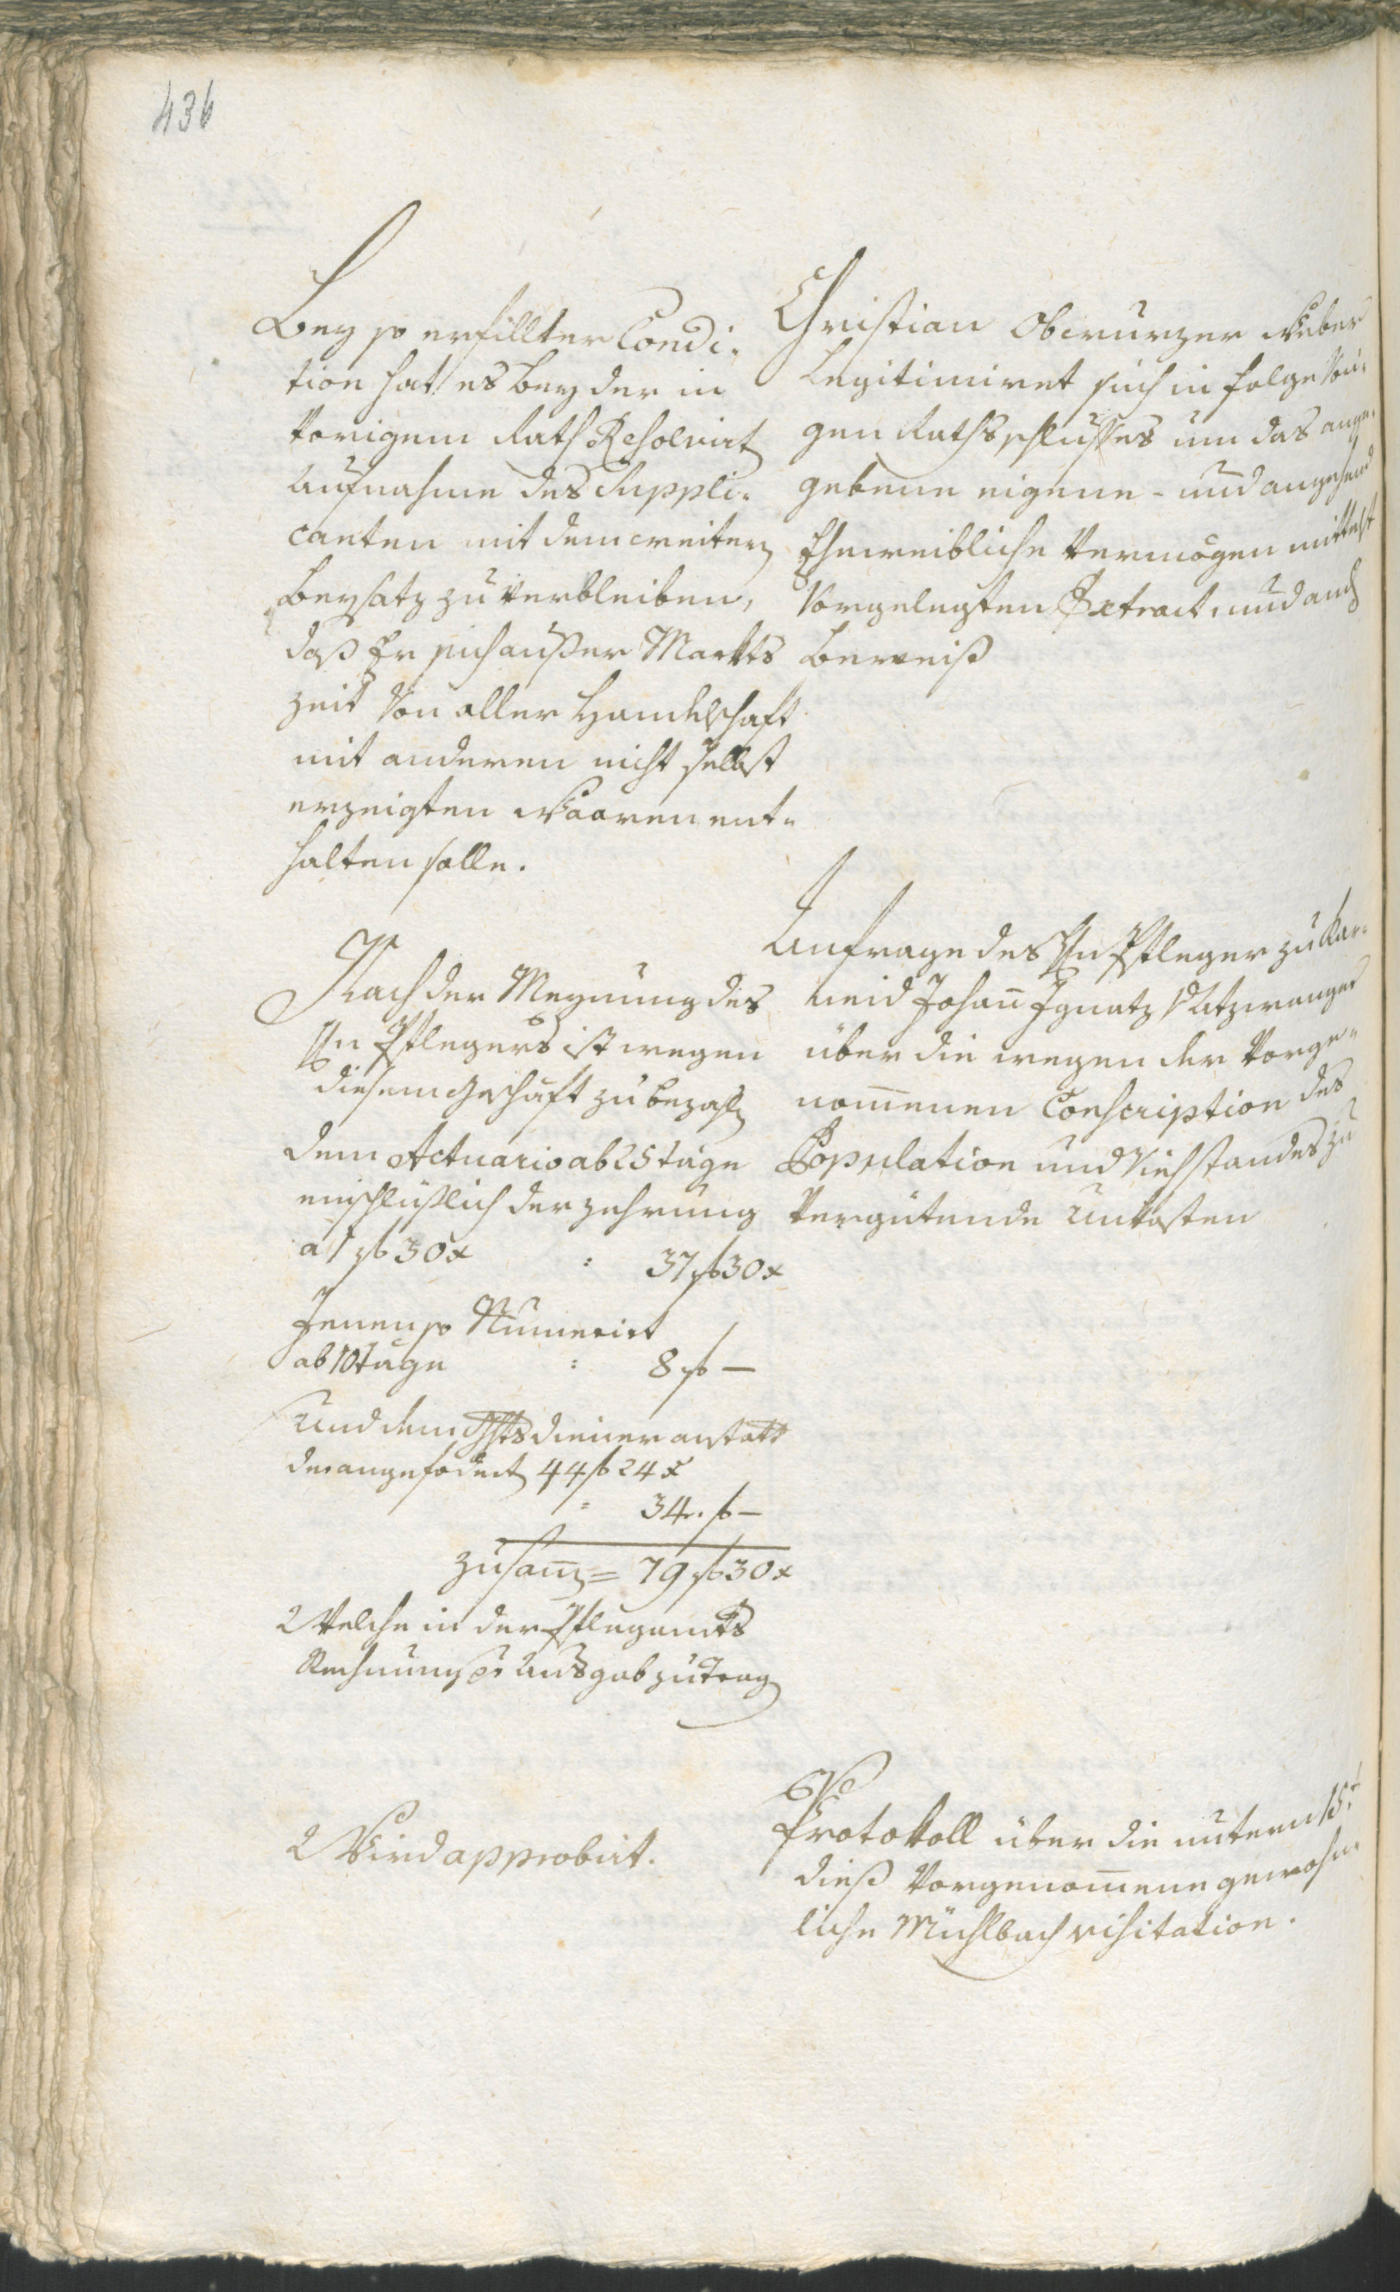 436
Bey so erfillter Condi-
tion hat es bey der in
vorigem Rath Resolvirt
Aufnahme des Suppli-
canten mit dem weitern
Beysatz zu verbleiben,
daß Er sich ausser Markts
zeit von aller Handelschaft
mit anderen nicht selbst
erzeigten Waaren ent-
halten solle.
Christian Oberurzer Weber
Legitimiret sich in folge vori-
gen Rathsschlusses um das ange-
gebene eigene- und angehend
Eheweibliche Vermögen mittelst
vorgelegten Extract, und auch
beweiß
Nach der Meynung des
Hn Pflegers ist wegen
diesem Geschäft zu bezahln
dem Actuario ab 25 täge
einschlüßlich der zehrung
a 1 f 30 x : 37 f 30 x
Jenen so Numerirt
ab 10 täge : 8 f —
Und dem Ghtsdiener anstatt
der angefodert 44 f 24 x
: 34. f —
zusam̅ = 79 f 30 x
Welche in der Pflegamts
Rechnung pr Ausgab zu Tragn
Anfrage des Hn Pfleger zu Kar-
neid Johan̅ Ignatz Atzwanger
über die wegen der vorge-
nom̅enen Conscription des
Population und Viehstandes zu
vergütende Unkösten
Wird approbirt.
Protokoll über die untern 15t
dieß vorgenom̅ene gewohn-
liche Mühlbach visitation.